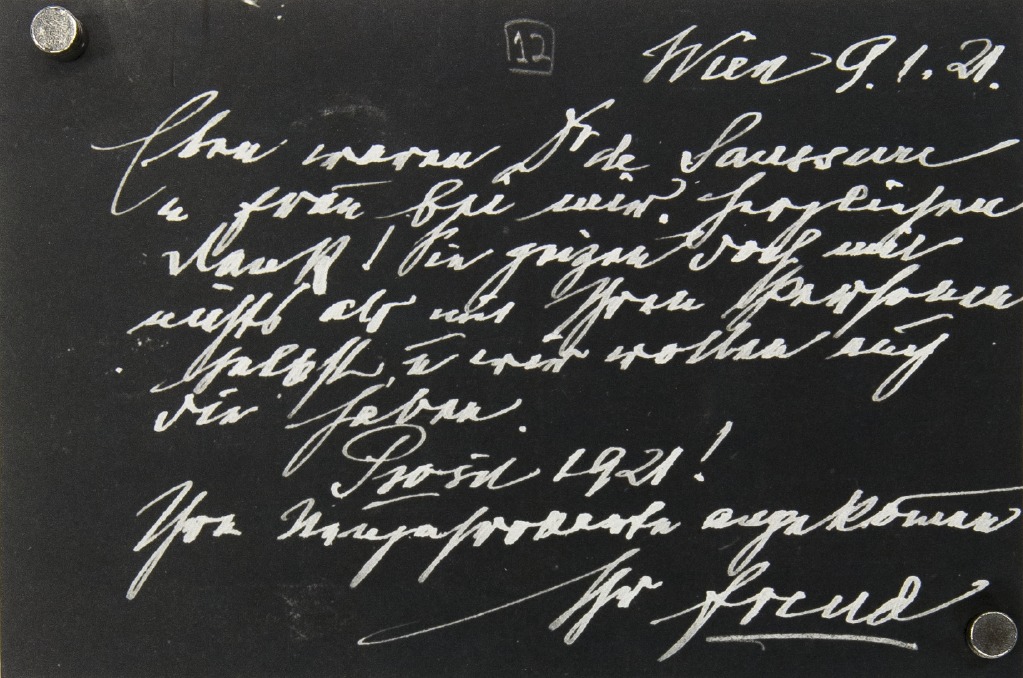 12
Wien 9.1.21.
Eben waren Dr de Saussure
u Frau bei mir. Herzlichen
Dank! Sie geizen doch mit
nichts als mit Ihrer Person
selbst, u wir wollen auch
die haben.
Prosit 1921!
Ihre Neujahrskarte angekommen
Ihr Freud